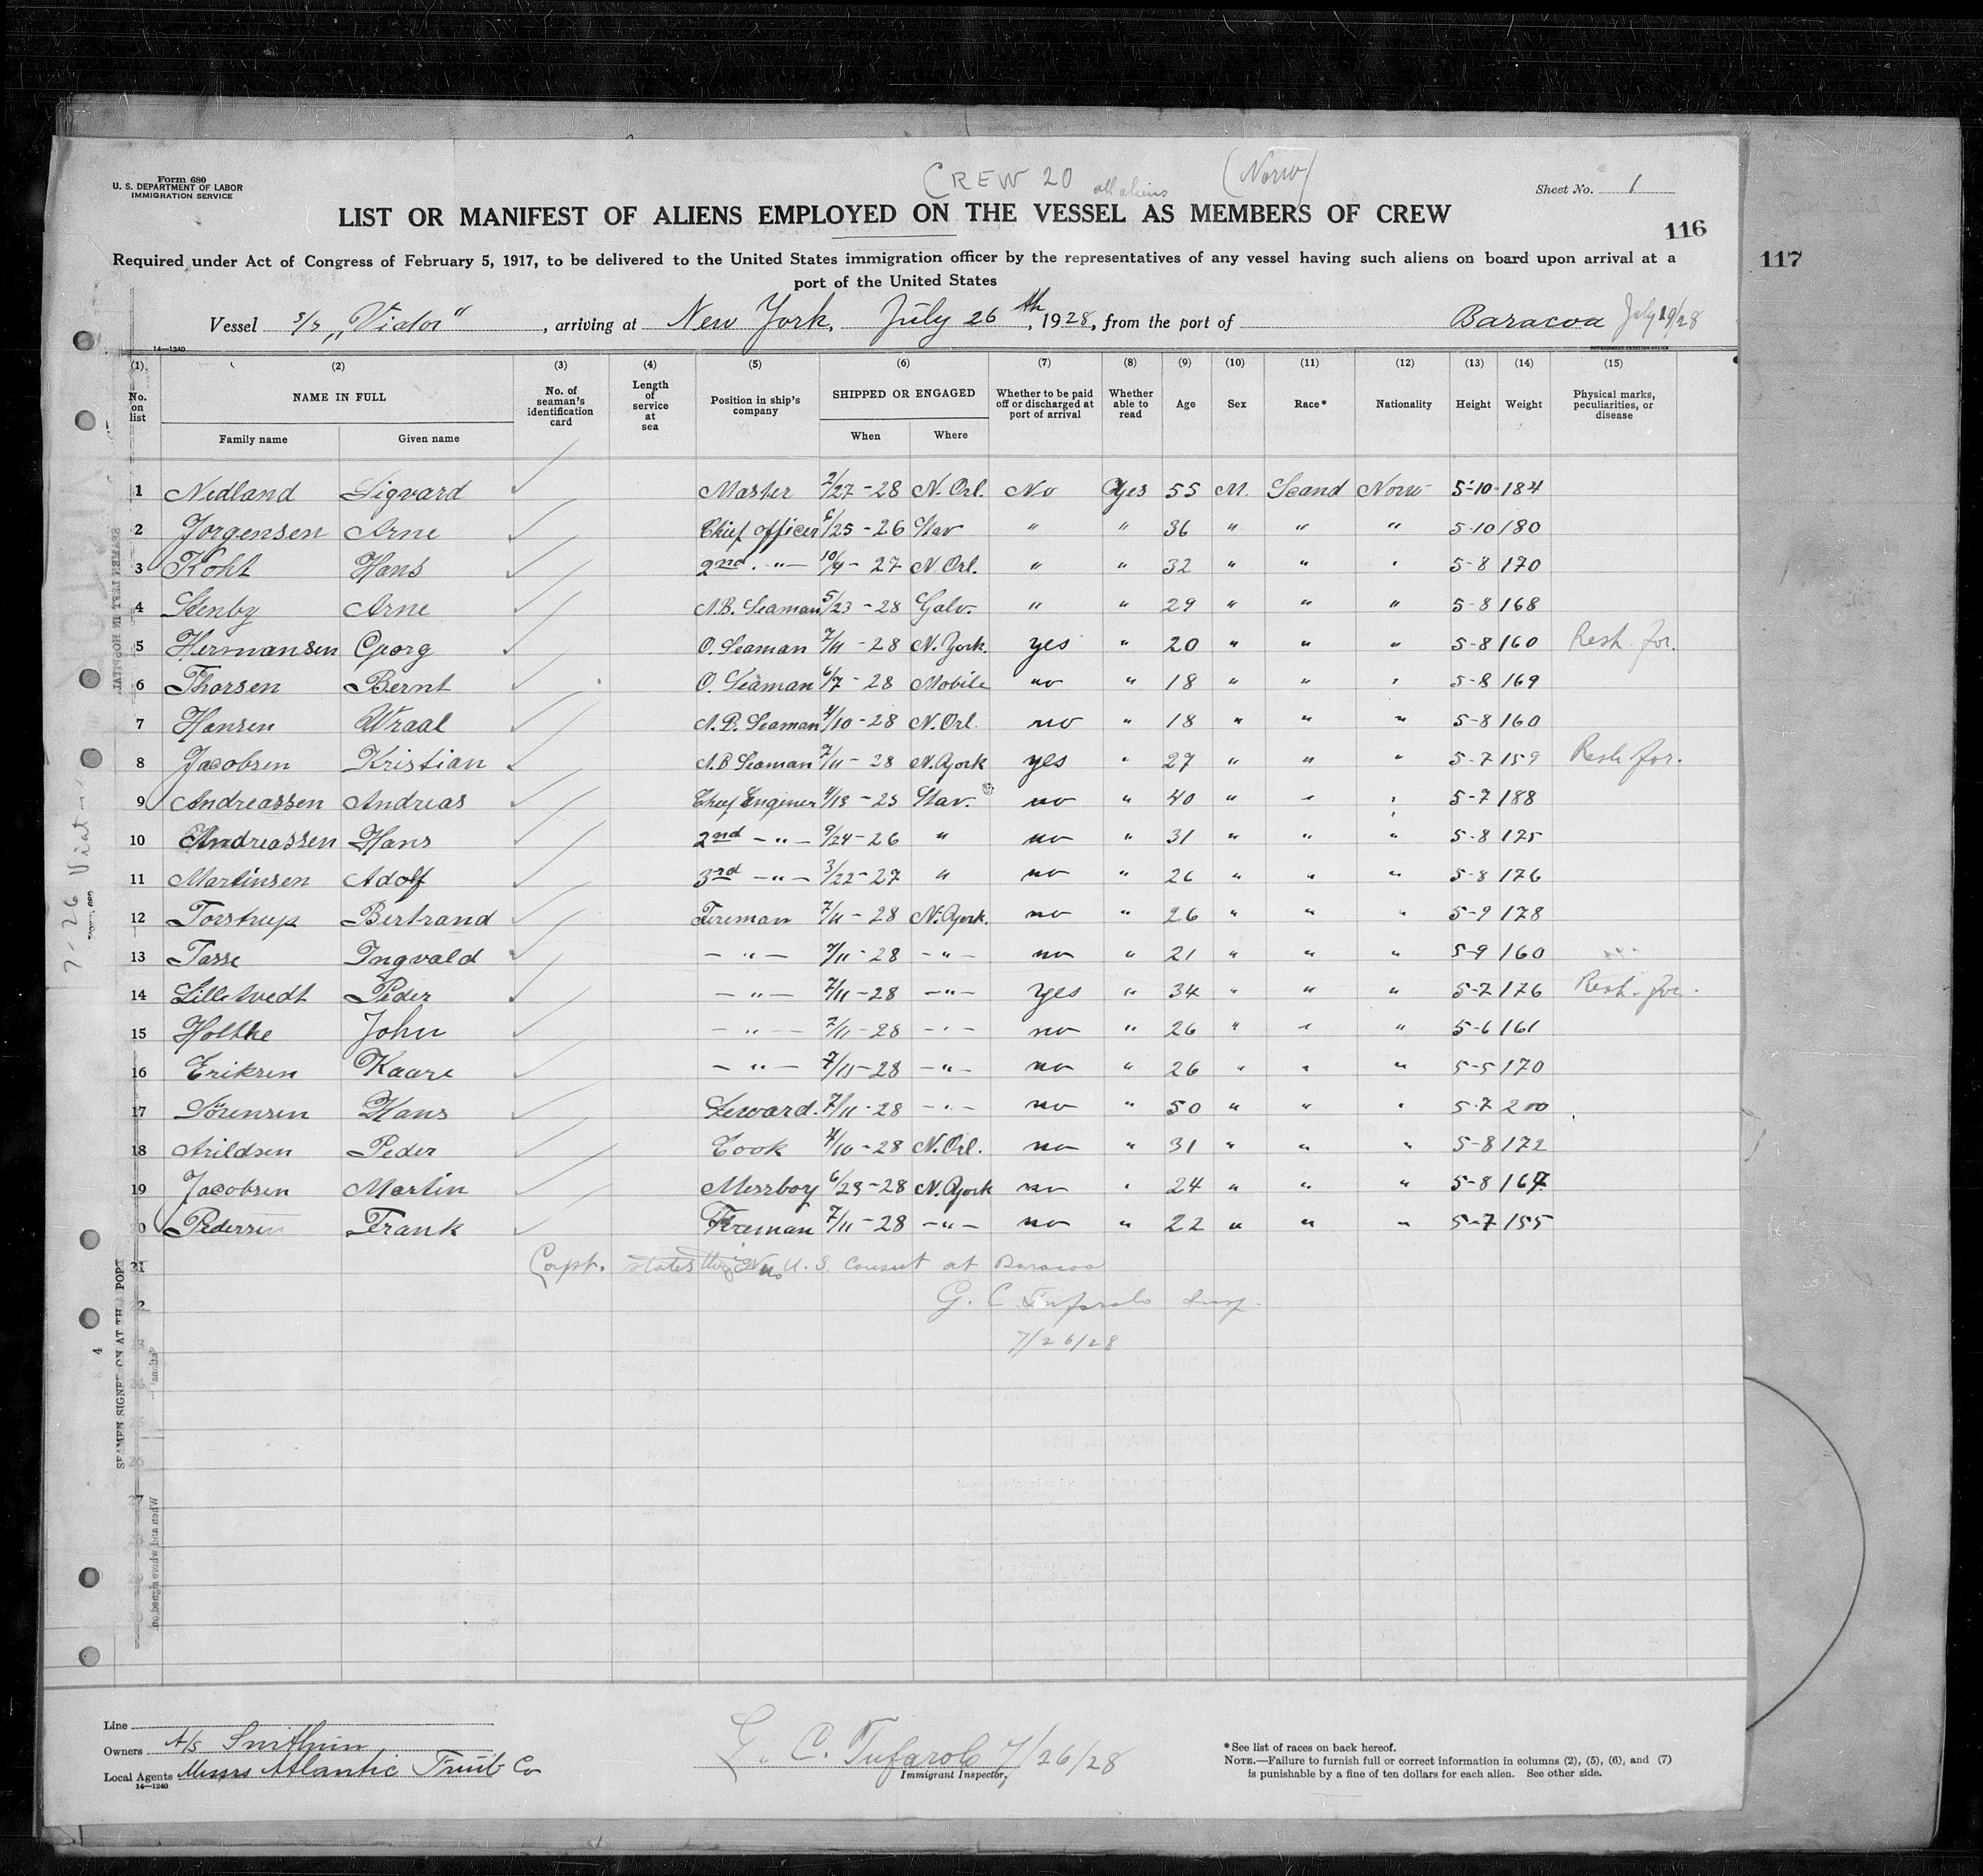 Form 680
U. S. DEPARTMENT OF LABOR
IMMIGRATION SERVICE
CREW 20 all aliens (Norw)
Sheet No. 1
LIST OR MANIFEST OF ALIENS EMPLOYED ON THE VESSEL AS MEMBERS OF CREW
116
117
Required under Act of Congress of February 5, 1917, to be delivered to the United States immigration officer by the representatives of any vessel having such aliens on board upon arrival at a
port of the United States
Vessel s/s „Viator“, arriving at New York, July 26th, 1928, from the port of Baracoa July 20/28
14—1240
(1) (2) (3) (4) (5) (6) (7) (8) (9) (10) (11) (12) (13) (14) (15)
No. on list NAME IN FULL No. of seaman's identification card Length of service at sea Position in ship's company SHIPPED OR ENGAGED Whether to be paid off or discharged at port of arrival Whether able to read Age Sex Race* Nationality Height Weight Physical marks, peculiarities, or disease
Family name Given name When Where
1 Nedland Sigvard Master 2/27-28 N. Orl. No Yes 55 M. Scand Norw 5-10 184
2 Jorgensen Arne Chief officer 6/25-26 Stav " " 36 " " " 5-10 180
3 Koht Hans 2nd -"- 10/4-27 N. Orl. " " 32 " " " 5-8 170
4 Stenby Arne A.B. Seaman 5/23-28 Galv. " " 29 " " " 5-8 168
5 Hermansen Georg O. Seaman 7/11-28 N. York. yes " 20 " " " 5-8 160 Resh. for.
6 Thorsen Bernt O. Seaman 6/7-28 Mobile no " 18 " " " 5-8 169
7 Hansen Wraal A.B. Seaman 4/10-28 N. Orl. no " 18 " " " 5-8 160
8 Jacobsen Kristian A.B Seaman 7/11-28 N. York yes " 27 " " " 5-7 159 Resh for.
9 Andreassen Andreas Chief Enginer 4/13-25 Stav. no " 40 " " " 5-7 188
10 Andreassen Hans 2nd -"- 9/24-26 " no " 31 " " " 5-8 175
11 Martinsen Adolf 3rd -"- 3/22-27 " no " 26 " " " 5-8 176
12 Torstrup Bertrand Fireman 7/11-28 N. York. no " 26 " " " 5-9 178
13 Tasse Ingvald -"- 7/11-28 -"- no " 21 " " " 5-9 160
14 Lilletvedt Peder -"- 7/11-28 -"- Yes " 34 " " " 5-7 176 Resh. for.
15 Holthe John -"- 7/11-28 -"- no " 26 " " " 5-6 161
16 Eriksen Kaare -"- 7/11-28 -"- no " 26 " " " 5-5 170
17 Sørensen Hans Steward. 7/11-28 -"- no " 50 " " " 5-7 200
18 Arildsen Peder Cook 4/10-28 N. Orl. no " 31 " " " 5-8 172
19 Jacobsen Martin Messboy 6/29-28 N. York no " 24 " " " 5-8 167
20 Pedersen Frank Fireman 7/11-28 -"- no " 22 " " " 5-7 155
21 Capt. states No U. S. Consul at Baracoa
22 G. C. Tufarolo Insp.
7/26/28
27
SEAMEN SIGNED ON AT THIS PORT
When and where signed on
SEAMEN LEFT IN HOSPITAL
7-26 Viator
4
Line
Owners A/S Smithun
Local Agents Messrs Atlantic Fruit Co
14—1240
G. C. Tufarolo 7/26/28
Immigrant Inspector.
*See list of races on back hereof.
NOTE.—Failure to furnish full or correct information in columns (2), (5), (6), and (7)
is punishable by a fine of ten dollars for each alien. See other side.